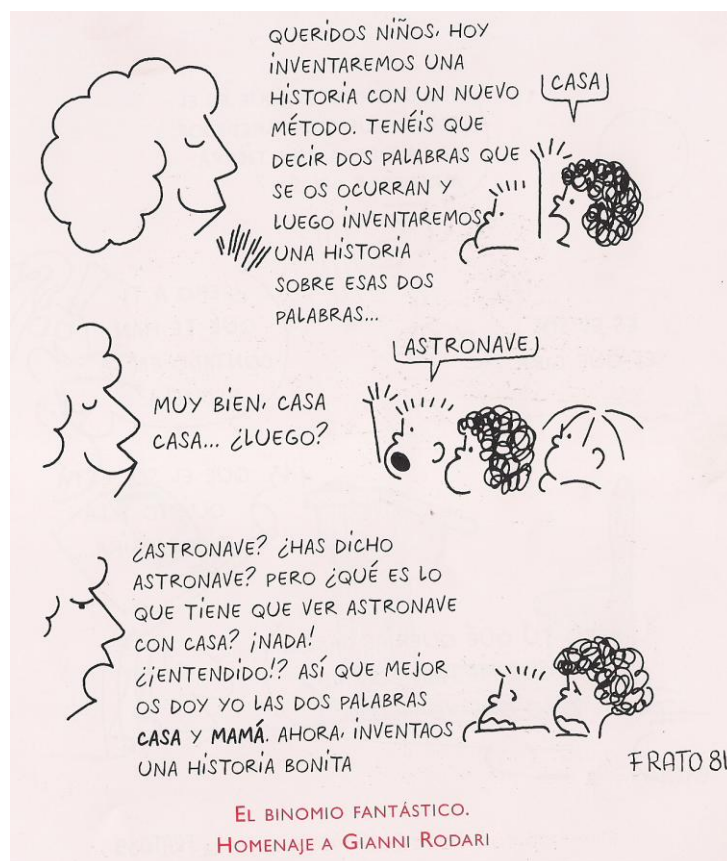 QUERIDOS NIÑOS, HOY
INVENTAREMOS UNA
HISTORIA CON UN NUEVO
MÉTODO. TENÉIS QUE
DECIR DOS PALABRAS QUE
SE OS OCURRAN Y
LUEGO INVENTAREMOS
UNA HISTORIA
SOBRE ESAS DOS
PALABRAS...
CASA
MUY BIEN, CASA
CASA... ¿LUEGO?
ASTRONAVE
¿ASTRONAVE? ¿HAS DICHO
ASTRONAVE? PERO ¿QUÉ ES LO
QUE TIENE QUE VER ASTRONAVE
CON CASA? ¡NADA!
¿¡ENTENDIDO!? ASÍ QUE MEJOR
OS DOY YO LAS DOS PALABRAS
CASA Y MAMÁ. AHORA, INVENTAOS
UNA HISTORIA BONITA
FRATO 81
EL BINOMIO FANTÁSTICO.
HOMENAJE A GIANNI RODARI